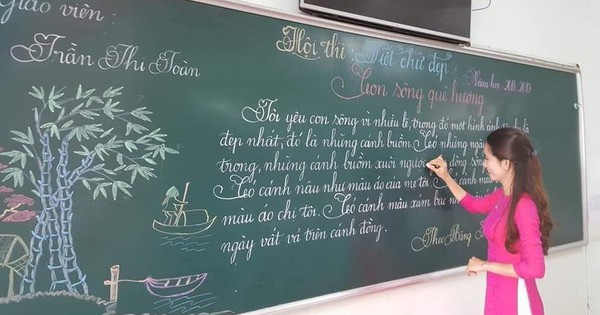 Giáo viên:
Trần Thu Toàn
Hội thi: Viết chữ đẹp
Năm học 2018-2019
Con sông quê hương
Tôi yêu con sông vì nhiều lẽ, trong đó một hình ảnh là
đẹp nhất, đó là những cánh buồm. Có những ngày
trong, những cánh buồm xuôi ngược dòng sông
Có cánh nâu như màu áo của mẹ tôi. Có cánh màu
màu áo chị tôi. Có cánh màu xám bạc
ngày vất vả trên cánh đồng.
Theo Băng Sơn